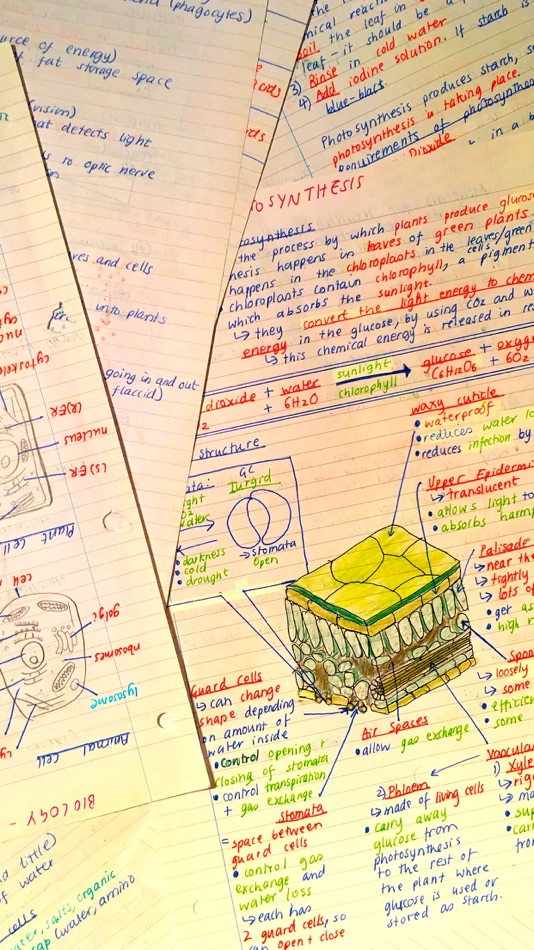 (phagocytes)
source of energy)
fat storage space
(vision)
that detects light
to optic nerve
and cells
into plants
going in and out
flaccid)
the leaf in
leaf - it should be a
3) Rinse in cold water
4) Add iodine solution. If starch is
blue-black.
Photosynthesis produces starch, so
photosynthesis is taking place.
requirements of photosynthesis
Dioxide
in a b
OSYNTHESIS
osynthesis
the process by which plants produce glucose
hesis happens in leaves of green plants
happens in the chloroplasts in the leaves/green
cells.
chloroplasts contain chlorophyll, a pigment
which absorbs the sunlight.
↳ they convert the light energy to chem
energy in the glucose, by using CO2 and w
↳ this chemical energy is released in re
dioxide + water sunlight glucose + oxyge
2 + 6H2O chlorophyll C6H12O6 + 6O2
structure
GC
Turgid
ight
O2
water
• darkness
• cold
• drought
→ stomata
open
waxy cuticle
• waterproof
• reduces water lo
• reduces infection by
Upper Epidermi
↳ translucent
• allows light to
• absorbs harm
Palisade
↳ near the
↳ tightly
↳ lots of
• get as
high r
Spon
↳ loosely
↳ some
• efficien
• some
Guard Cells
↳ can change
shape depending
on amount of
water inside
• Control opening +
closing of stomata
• control transpiration
+ gas exchange
Air Spaces
• allow gas exchange
Stomata
= space between
guard cells
• control gas
exchange and
water loss
↳ each has
2 guard cells, so
can open + close
Vascula
2) Phloem
↳ made of living cells
• carry away
glucose from
photosynthesis
to the rest of
the plant where
glucose is used or
stored as starch.
1) Xyle
↳ rig
↳ ma
• sup
• carr
fro
cytoskele
(R)ER
nucleus
(S)ER
Plant Cell
cell
golgi
ribosomes
lysosome
Animal Cell
BIOLOGY -
little)
of water
cells
water, salts, organic
(water, amino